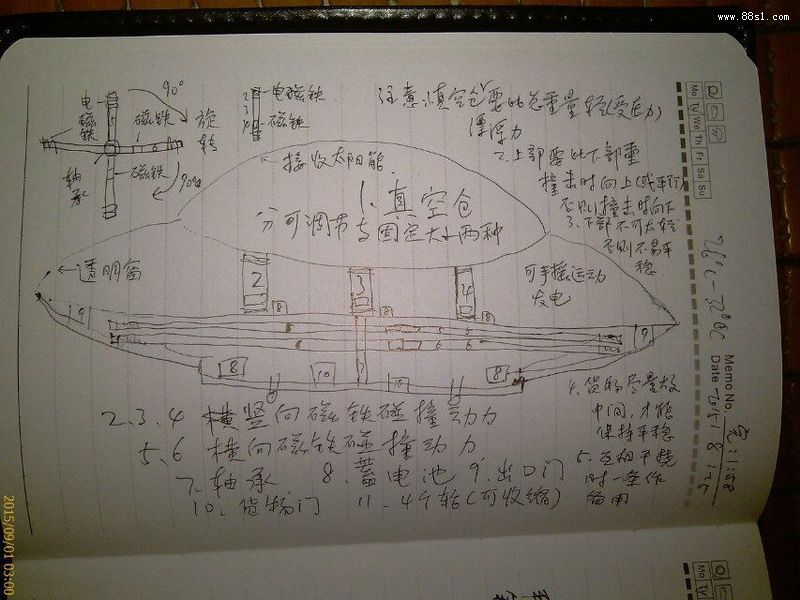 www.88s1.com
90°
电磁铁
磁铁
旋转
磁铁
轴承
90°
2 3 4
电磁铁
磁铁
注意:真空仓要比总重量轻(受压力)
漂浮力
2、上部要比下部重
撞击时向上(或平行)
否则撞击时向下
3、下部不可太轻
否则不易平
稳
接收太阳能
1、真空仓
分可调节与固定大小两种
透明窗
可手摇运动
发电
2
3
4
8
8
8
9
9
6
6
6
8
10
10
8
2、3、4 竖向磁铁碰撞动力
5、6 横向磁铁碰撞动力
7、轴承 8、蓄电池 9、出口门
10、货物门 11、4个轮(可收缩)
4、货物尽量放
中间,才能
保持平稳
5、互相干扰
时一条作
备用
Mo Tu We Th Fr Sa Su
Memo No.
Date
2015/09/01 03:00
Mo